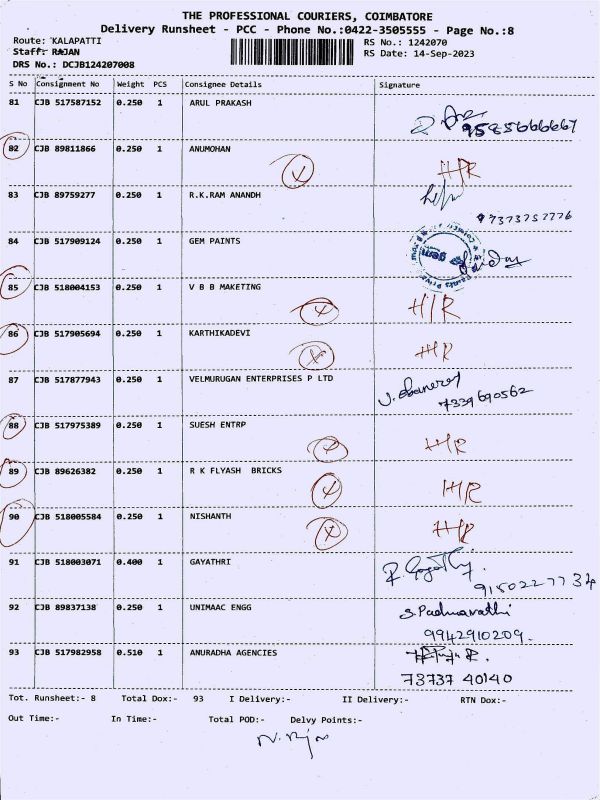 THE PROFESSIONAL COURIERS, COIMBATORE
Delivery Runsheet - PCC - Phone No.:0422-3505555 - Page No.:8
Route: KALAPATTI
RS No.: 1242070
Staff: RAJAN
RS Date: 14-Sep-2023
DRS No.: DCJB124207008
S No Consignment No Weight PCS Consignee Details Signature
81 CJB 517587152 0.250 1 ARUL PRAKASH
9585666667
82 CJB 89811866 0.250 1 ANUMOHAN H/R
83 CJB 89759277 0.250 1 R.K.RAM ANANDH
7373757776
84 CJB 517909124 0.250 1 GEM PAINTS
gem
85 CJB 518004153 0.250 1 V B B MAKETING
H/R
86 CJB 517905694 0.250 1 KARTHIKADEVI
H/R
87 CJB 517877943 0.250 1 VELMURUGAN ENTERPRISES P LTD
7339690562
88 CJB 517975389 0.250 1 SUESH ENTRP
H/R
89 CJB 89626382 0.250 1 R K FLYASH BRICKS
H/R
90 CJB 518005584 0.250 1 NISHANTH
H/R
91 CJB 518003071 0.400 1 GAYATHRI
9150227734
92 CJB 89837138 0.250 1 UNIMAAC ENGG S. Padmavathi
9942910209.
93 CJB 517982958 0.510 1 ANURADHA AGENCIES
73737 40140
Tot. Runsheet:- 8 Total Dox:- 93 I Delivery:- II Delivery:- RTN Dox:-
Out Time:- In Time:- Total POD:- Delvy Points:-